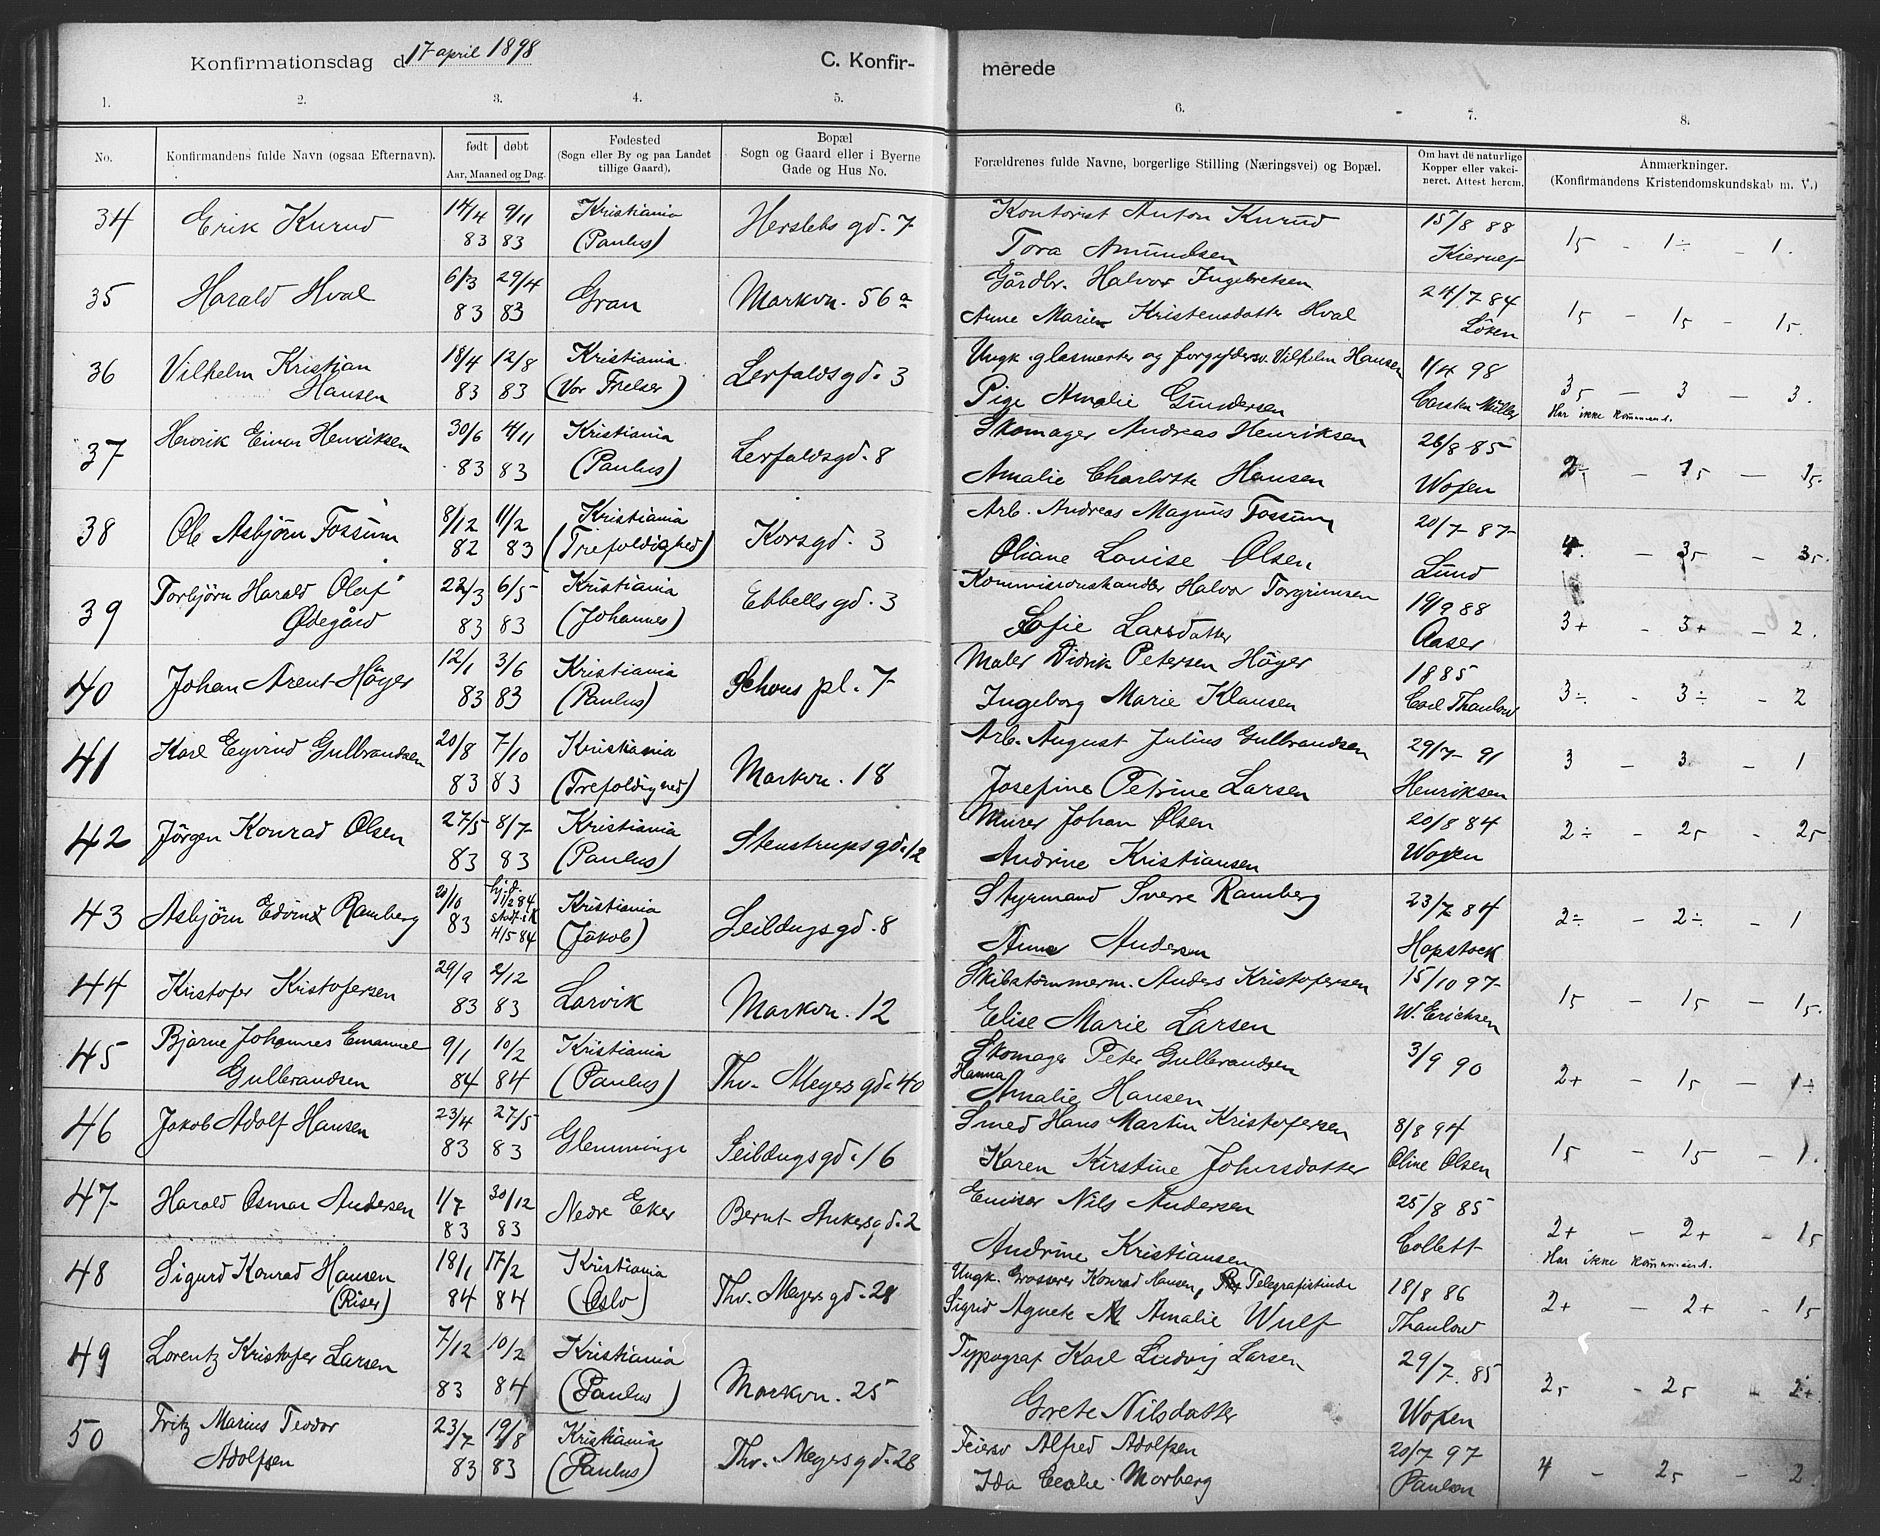 Konfirmationsdag d. 17 april 1898 C. Konfir- merede
1. 2. 3. 4. 5. 6. 7. 8.
No. Konfirmandens fulde Navn (ogsaa Efternavn). født døbt Aar, Maaned og Dag.
Fødested (Sogn eller By og paa Landet tillige Gaard).
Bopæl Sogn og Gaard eller i Byerne Gade og Hus No.
Forældrenes fulde Navne, borgerlige Stilling (Næringsvei) og Bopæl.
Om havt de naturlige Kopper eller vakcineret. Attest herom.
Anmærkninger. (Konfirmandens Kristendomskundskab m. V.)
34 Erik Kurud 14/4 83 9/11 83 Kristiania (Paulus) Herslebs gd. 7 Kontorist Anton Kurud 15/8 88 15 - 1÷ - 1.
Tora Amundsen Kierulf
35 Harald Hval 6/3 83 29/4 83 Gran Markvn. 56a Gårdbr. Halvor Ingebretsen 24/7 84 15 - 15 - 15.
Anne Marie Kristensdatter Hval Löken
36 Vilhelm Kristian Hansen 18/4 83 12/8 83 Kristiania (Vor Frelser) Lerfaldsgd. 3 Ungk. glasmester og forgyldersv. Vilhelm Hansen 1/4 98 35 - 3 - 3.
Pige Amalie Gundersen Carsten Müller Har ikke kommunict.
37 Henrik Einar Henriksen 30/6 83 4/11 83 Kristiania (Paulus) Lerfaldsgd. 8 Skomager Andreas Henriksen 26/8 85 2÷ - 15 - 15.
Amalie Charlotte Hansen Woxen
38 Ole Asbjørn Fossum 8/12 82 11/2 83 Kristiania (Trefoldighed) Korsgd. 3 Arb. Andreas Magnus Fossum 20/7 87 4 - 35 - 35.
Oliane Lovise Olsen Lund
39 Torbjørn Harald Olaf Ødegård 22/3 83 6/5 83 Kristiania (Johannes) Ebbells gd. 3 Kommissionshandler Halvor Torgrimsen 19/9 88 3+ - 3+ - 2.
Sofie Larsdatter Aaser
40 Johan Arent Höyer 12/1 83 3/6 83 Kristiania (Paulus) Schous pl. 7 Maler Didrik Petersen Höyer 1885 3÷ - 3÷ - 2
Ingeborg Marie Klausen Carl Thaulow
41 Karl Eyvind Gulbrandsen 20/8 83 7/10 83 Kristiania (Trefoldighed) Markvn. 18 Arb. August Julius Gulbrandsen 29/7 91 3 - 3 - 1
Josefine Petrine Larsen Henriksen
42 Jørgen Konrad Olsen 27/5 83 8/7 83 Kristiania (Paulus) Stenstrupsgd. 12 Murer Johan Olsen 20/8 84 2÷ - 25 - 25
Andrine Kristiansen Woxen
43 Asbjørn Edvind Ramberg 20/10 83 hj.d. 1/2 84 stadf. i K 4/5 84 Kristiania (Jakob) Seildugsgd. 8 Styrmand Sverre Ramberg 23/7 84 2÷ - 2÷ - 1
Anna Andersen Hopstock
44 Kristofer Kristofersen 29/9 83 2/12 83 Larvik Markvn. 12 Skibstömmerm. Anders Kristofersen 15/10 97 15 - 15 - 15.
Elise Marie Larsen W. Ericksen
45 Bjarne Johannes Emanuel Gulbrandsen 9/1 84 10/2 84 Kristiania (Paulus) Thv. Meyers gd. 40 Skomager Peter Gulbrandsen 3/9 90 2+ - 15 - 1÷
Hanna Amalie Hansen
46 Jakob Adolf Hansen 23/4 83 27/5 83 Glemminge Seildugsgd. 16 Smed Hans Martin Kristofersen 8/8 94 15 - 15 - 1.
Karen Kirstine Johnsdatter Oline Olsen
47 Harald Osmar Andersen 1/7 83 30/12 83 Nedre Eker Bernt Ankersgd. 2 Emisær Nils Andersen 25/8 85 2+ - 2+ - 15
Andrine Kristiansen Collett Har ikke kommunict.
48 Sigurd Konrad Hansen (Riser) 18/1 84 17/2 84 Kristiania (Oslo) Thv. Meyers gd. 28 Ungk. Grosserer Konrad Hansen, Telegrafistinde 18/8 86 2+ - 2+ - 15
Sigrid Agnete Amalie Wulf Thaulow
49 Lorentz Kristofer Larsen 7/12 83 10/2 84 Kristiania (Paulus) Markvn. 25 Typograf Karl Ludvig Larsen 29/7 85 25 - 25 - 2+
Grete Nilsdatter Woxen
50 Fritz Marius Teodor Adolfsen 23/7 83 19/8 83 Kristiania (Paulus) Thv. Meyers gd. 28 Feiersv Alfred Adolfsen 20/7 97 4 - 25 - 2.
Ida Cecilie Morberg Paulsen